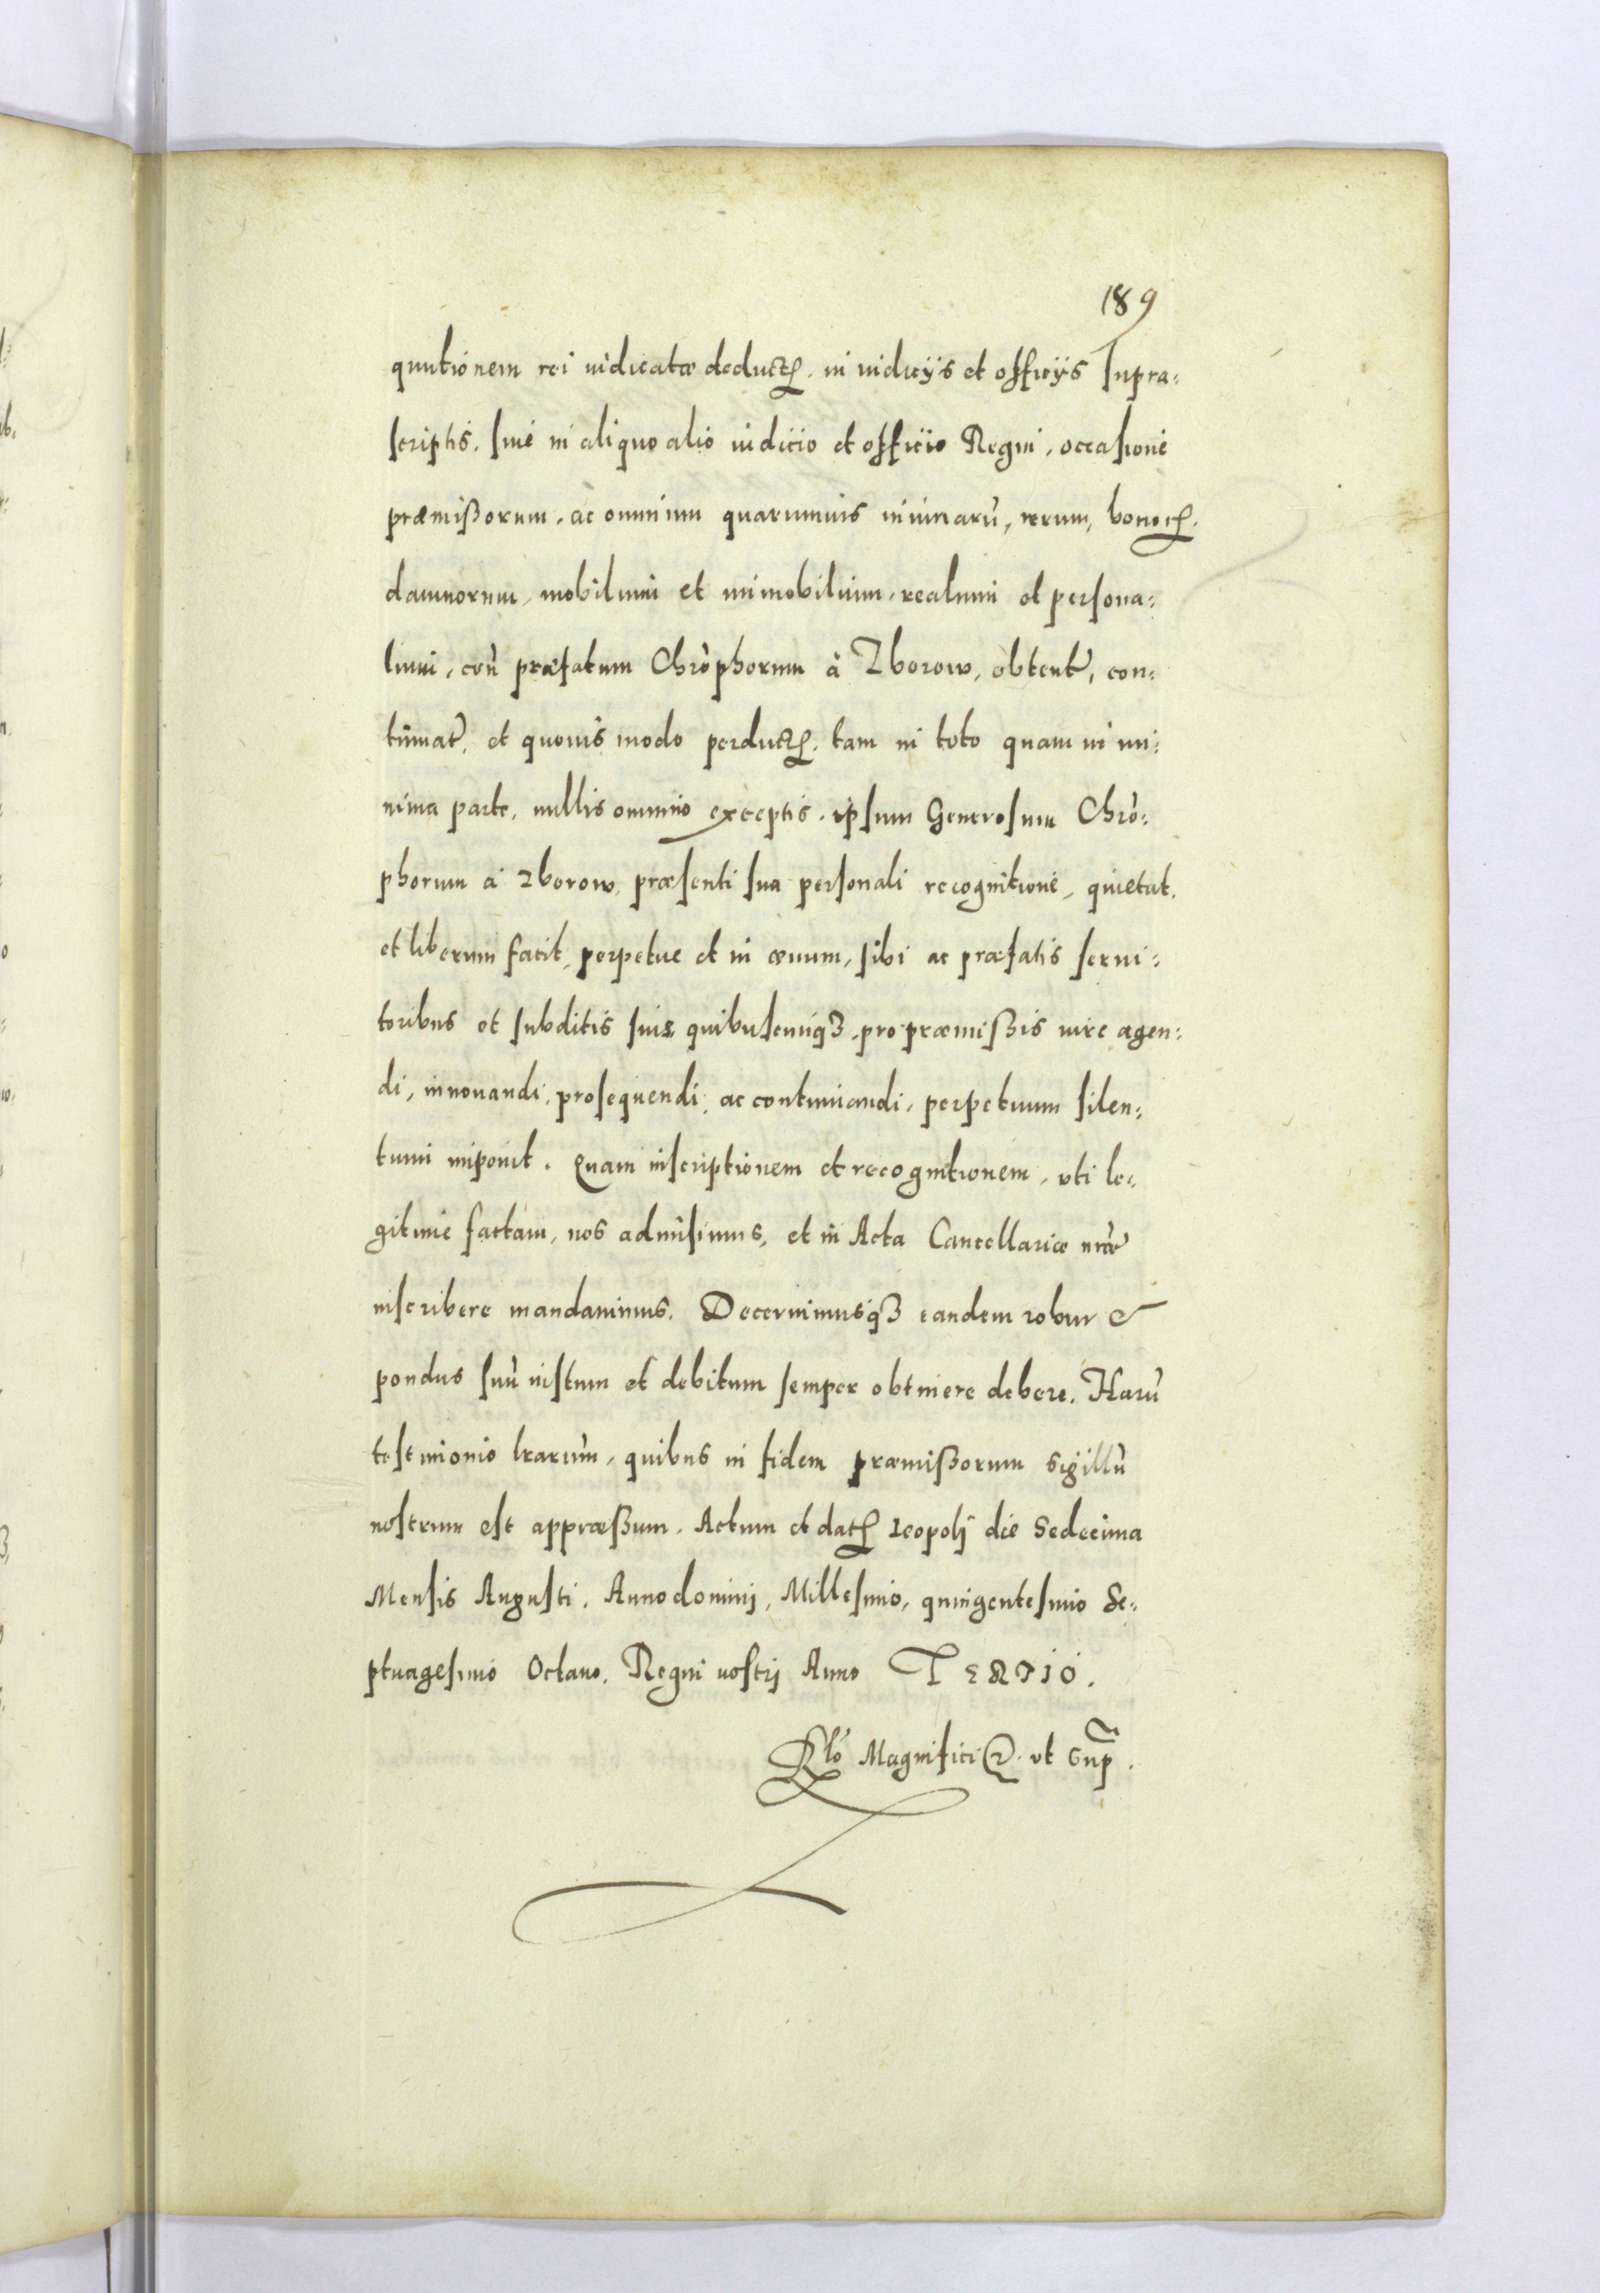 189
quutionem rei iudicatæ deductꝝ. in iudicijs et officijs supra:
scriptis. siue in aliquo alio iudicio et officio Regni, occasione
præmißorum, ac omnium quarumuis iniuriarũ, rerum, bonorꝝ.
damnorum, mobilium et immobilium, realium et persona:
lium, corã præfatum Chrõphorum à Zborow, obtent, con:
tinuat, et quouis modo perductꝝ. tam in toto quam in mi:
nima parte, nullis omnino exceptis. ipsum Generosum Chrõ:
phorum à Zborow, præsenti sua personali recognitione, quietat.
et liberum facit, perpetue et in æuum, sibi ac præfatis serui:
toribus et subditis suis quibuscunqꝫ, pro præmißis iure agen:
di, innouandi, prosequendi, ac continuandi, perpetuum silen:
tium imponit. Quam inscriptionem et recognitionem, vti le:
gitime factam, nos admisimus, et in Acta Cancellariæ nr̃æ
inscribere mandauimus. Decernimusqꝫ eandem robur &
pondus suũ iustum et debitum semper obtinere debere. Harũ
testimonio lrarum, quibus in fidem præmißorum sigillũ
nostrum est appræßum. Actum et datꝝ Leopolj die Sedecima
Mensis Augusti. Anno dominj, Millesimo, quingentesimo Se:
ptuagesimo Octauo. Regni nostrj Anno TERTIO.
Rlõ Magnifici &. vt sup̃.